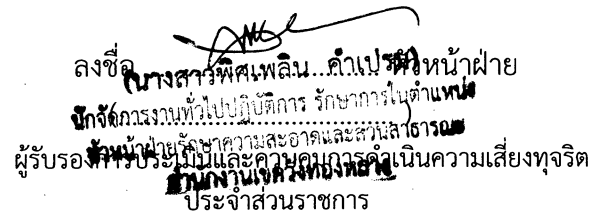 ลงชื่อ.................... หัวหน้าฝ่าย
(นางสาวพิศเพลิน คำเปรม)
นักจัดการงานทั่วไปปฏิบัติการ รักษาการในตำแหน่ง
(....................................................)
หัวหน้าฝ่ายรักษาความสะอาดและสวนสาธารณะ
ผู้รับรองการประเมินและควบคุมการดำเนินความเสี่ยงทุจริต
สำนักงานเขตวังทองหลาง
ประจำส่วนราชการ